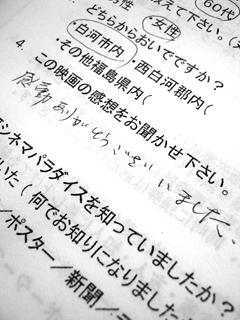 男性 女性 60代
えて下さい。
どちらからおいでですか？
・白河市内・西白河郡内（
・その他福島県内（
4. この映画の感想をお聞かせ下さい。
感動ありがとうございました。
シネマパラダイスを知っていましたか？
いた（何でお知りになりました
／ポスター／新聞／テ